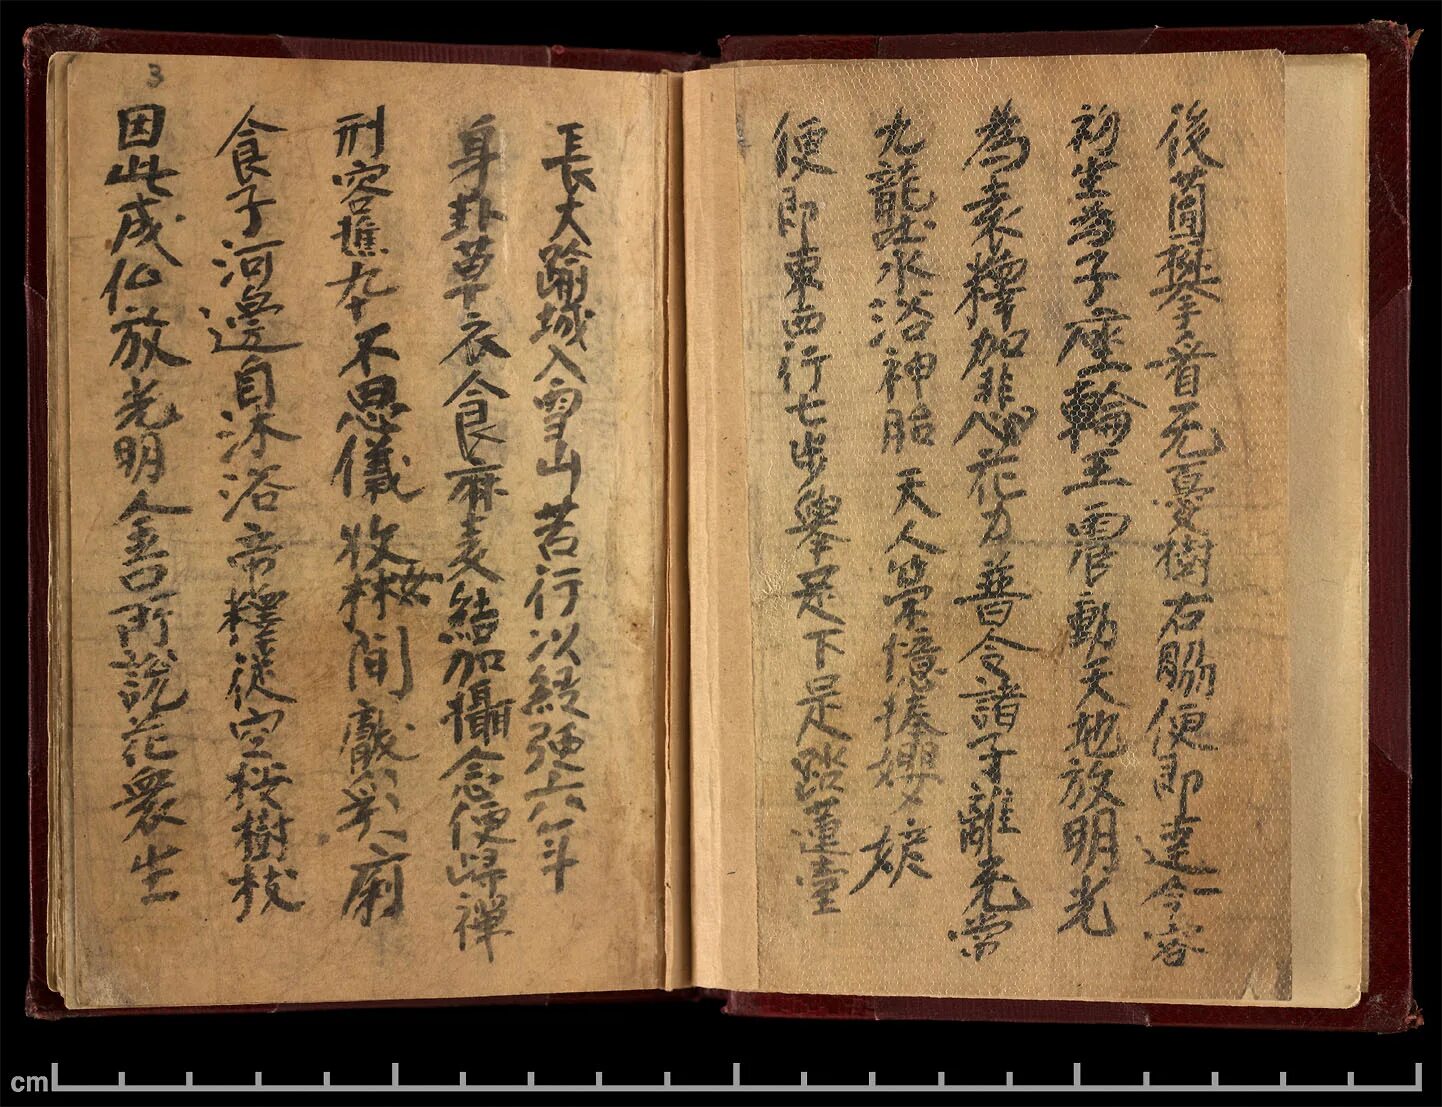 後薗攀手着无憂樹右脇便即達令容
初生為子座輪王震動天地放明光
為素釋加悲花力普令諸子離死常
九龍吐水浴神胎天人 憶捧櫻媄
便即東西行七步舉足下足踏蓮臺
長大踰城入雪山苦行以經强六年
身卦草衣食麻麦結加攝念便歸禪
刑容憔九十不思儀牧女林間獻乳廟
食子河邊自沐浴帝釋從空桉樹枝
因此成仏放光明人善所說花衆生
3
cm